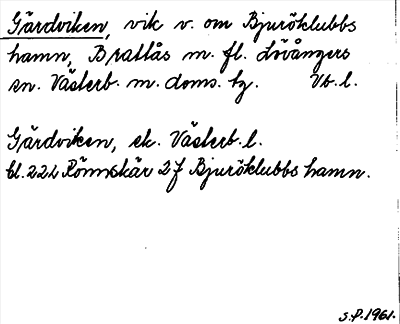 Gärdviken, vik v. om Bjuröklubbs
hamn, Brattås m. fl. Lövångers
sn. Västerb. m. doms. tg. Vb. l.
Gärdviken, ek. Västerb. l.
bl. 222 Rönnskär 2 f Bjuröklubbs hamn.
S.P. 1961.